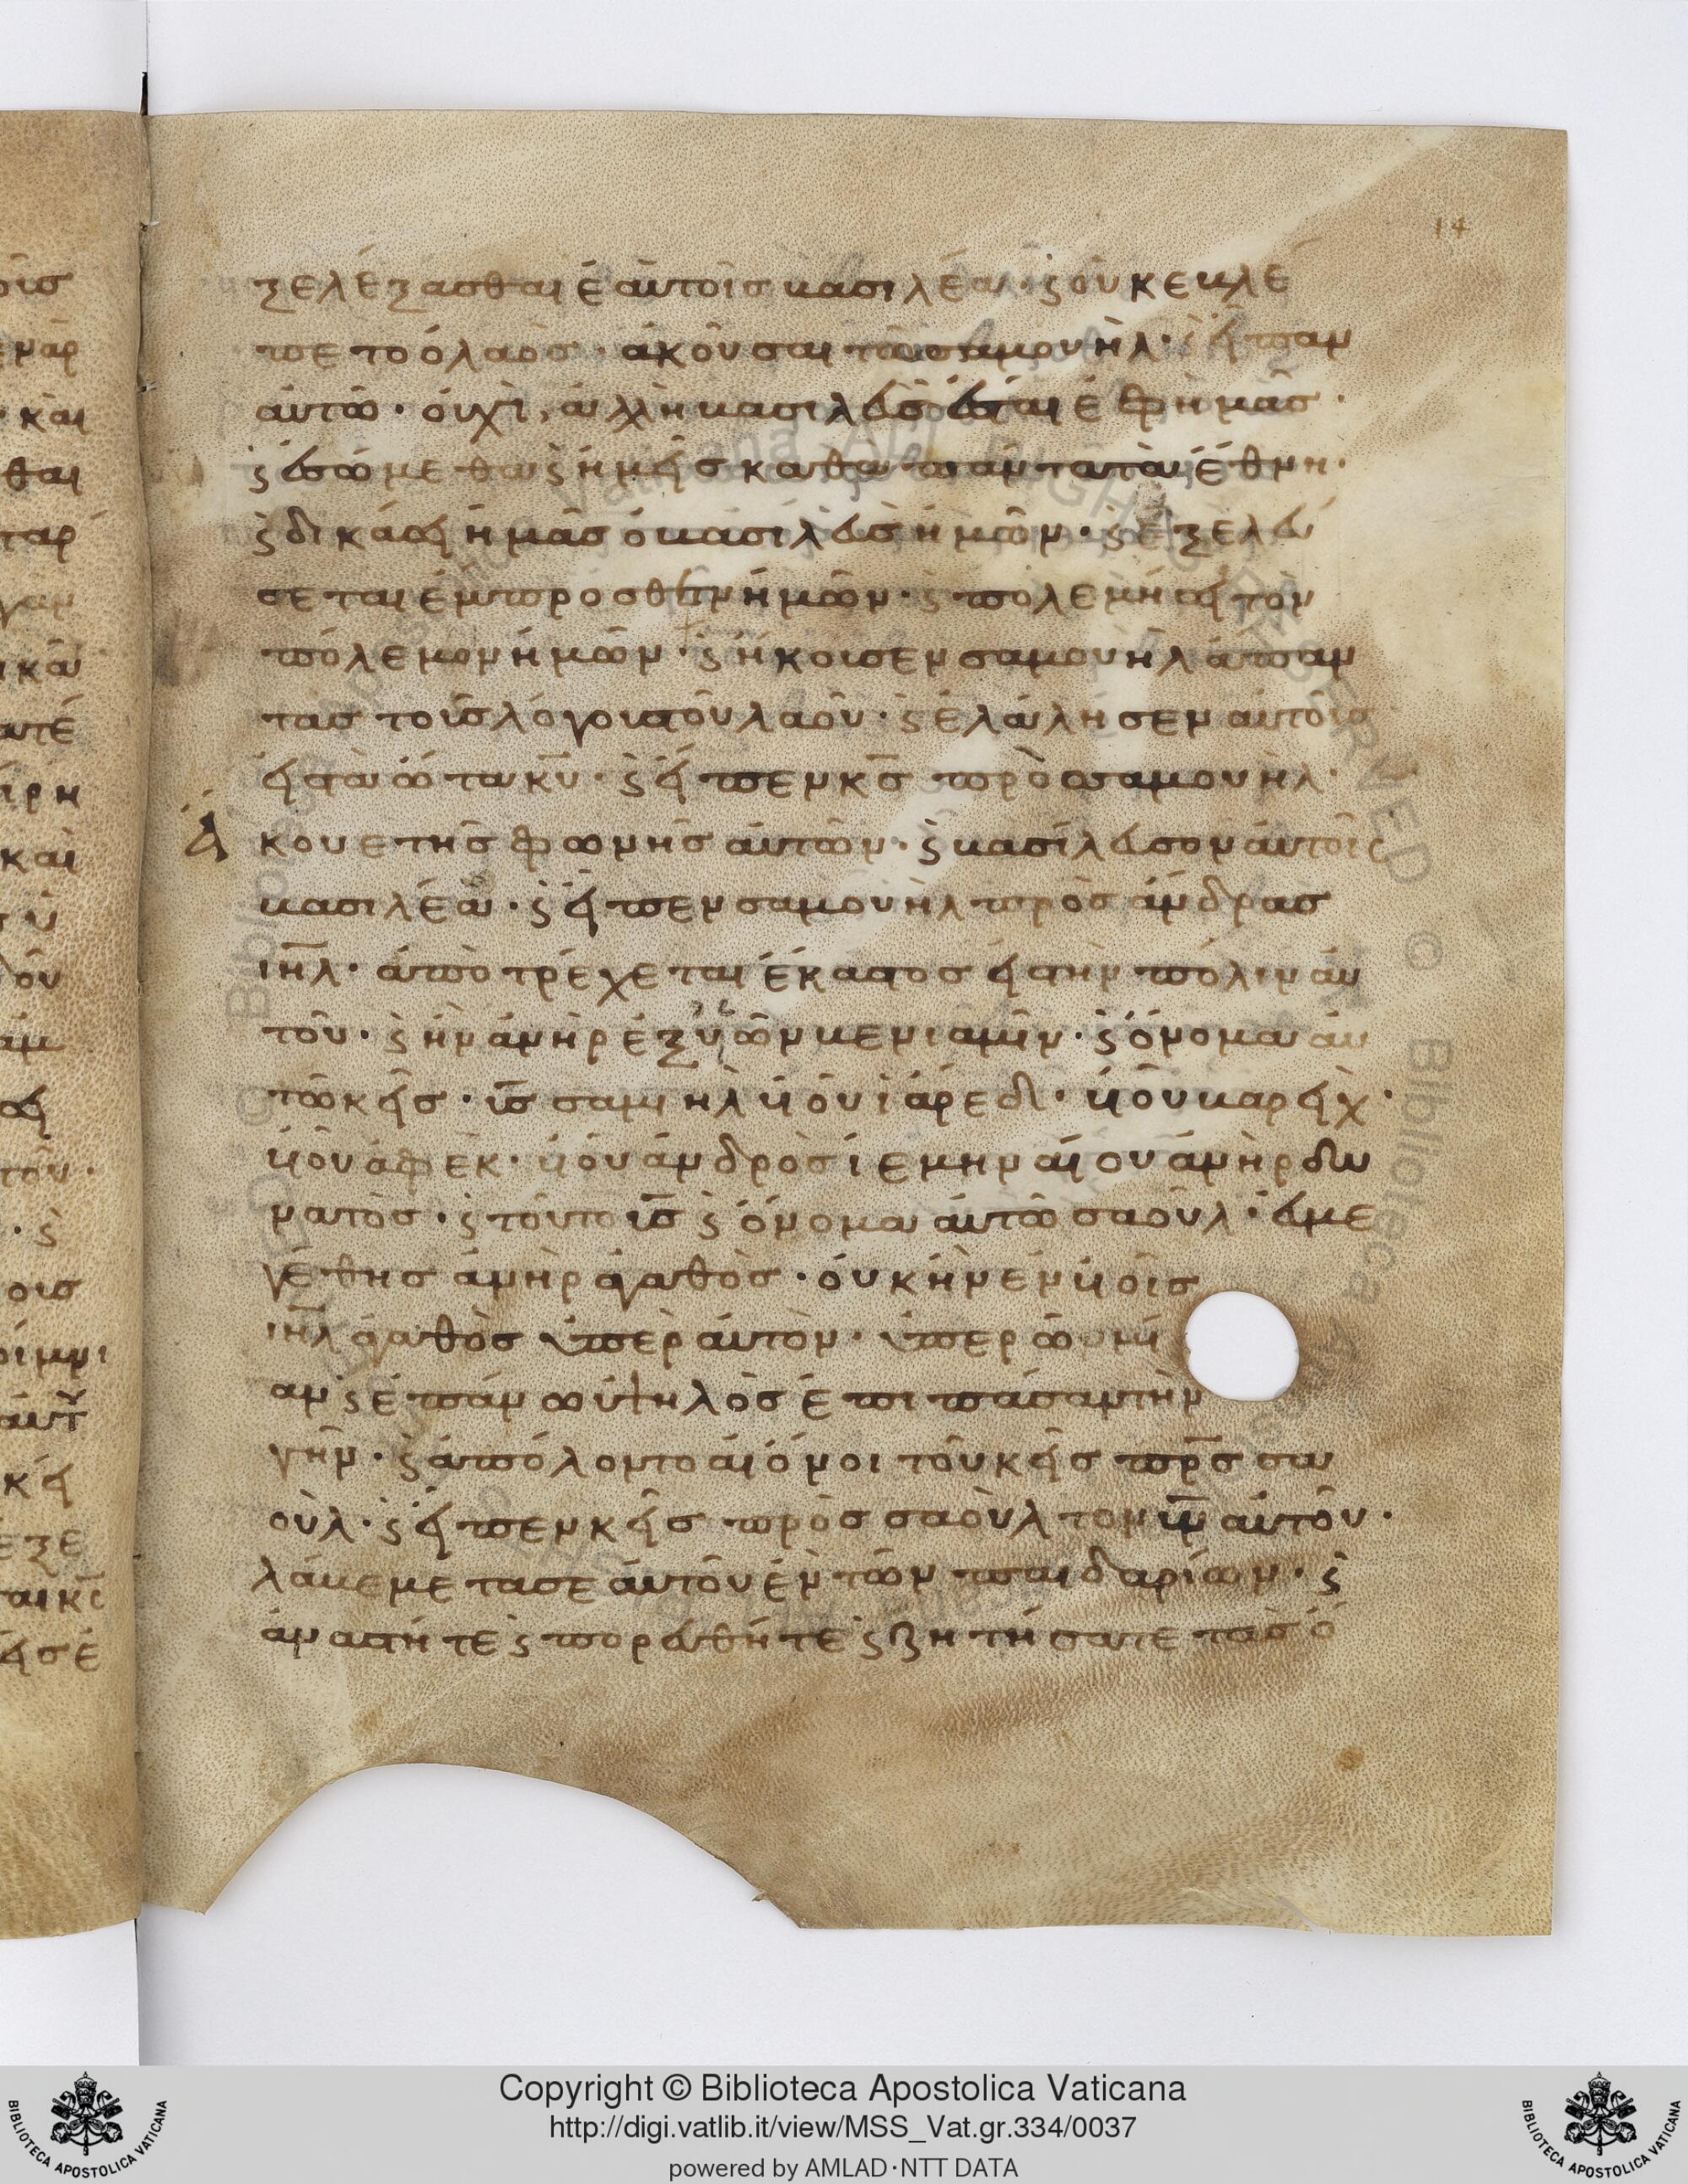 14
ξελέξασθαι ἑαυτοῖς βασιλέα· ϛ οὐκ ἐβλέ
πετο ὁ λαὸς· ἀκοῦσαι τοῦ σαμουὴλ· ϛ εἶπαν
αὐτῶ· οὐχὶ, ἀλλὴ βασιλεὺς ἔσται ἐφ ἡμᾶς·
ϛ ἐσώμεθα ϛ ἡμεῖς καθὰ πάντα τὰ ἔθνη·
ϛ δικάσει ἡμᾶς ὁ βασιλεὺς ἡμῶν· ϛ ἐξελεύ
σεται ἔμπροσθεν ἡμῶν· ϛ πολεμήσει τὸν
πόλεμον ἡμῶν· ϛ ἤκουσεν σαμουὴλ ἅπαν
τας τοὺς λόγους τοῦ λαοῦ· ϛ ἐλάλησεν αὐτοὺς
εἰς τὰ ὦτα κυ· ϛ εἶπεν κς πρὸς σαμουὴλ·
ἄκουε τῆς φωνῆς αὐτῶν· ϛ βασίλευσον αὐτοῖς
βασιλέα· ϛ εἶπεν σαμουὴλ πρὸς ἄνδρας
ιηλ· ἀποτρέχεται ἕκαστος εἰς τὴν πόλιν αὐ
τοῦ· ϛ ἦν ἀνὴρ ἐξ υἱῶν βενιαμὶν· ϛ ὄνομα αὐ
τῶ κεῖς· υς σαμιηλ ὑοῦ ἰάρεδι· ὑοῦ βαρεὶχ·
ὑοῦ ἀφὲκ· ὑοῦ ἀνδρὸς ἰεμηναίου ἀνὴρ δυ
νατὸς· ϛ τοῦτο υς ϛ ὄνομα αὐτῶ σαοῦλ· εὐμε
γέθης ἀνὴρ ἀγαθὸς· οὐκ ἦν ἐν ὑοῖς
ιηλ ἀγαθὸς ὑπὲρ αὐτὸν· ὑπὲρ ὠμί
αν ϛ ἐπάνω ὑψηλὸς ἐπι πάσαν τὴν
γῆν· ϛ ἀπόλοντο αἱ ὄνοι τοῦ κεῖς πρς σα
οὺλ· ϛ εἶπεν κεῖς πρὸς σαοὺλ τον υν αὐτοῦ·
λάβε μετα σεαυτοῦ ἓν τῶν παιδαρίων· ϛ
ἀναστήτε ϛ πορεύθητε ϛ ζητήσατε τὰς ὄ
Copyright © Biblioteca Apostolica Vaticana
http://digi.vatlib.it/view/MSS_Vat.gr.334/0037
powered by AMLAD·NTT DATA
BIBLIOTECA APOSTOLICA VATICANA
BIBLIOTECA APOSTOLICA VATICANA